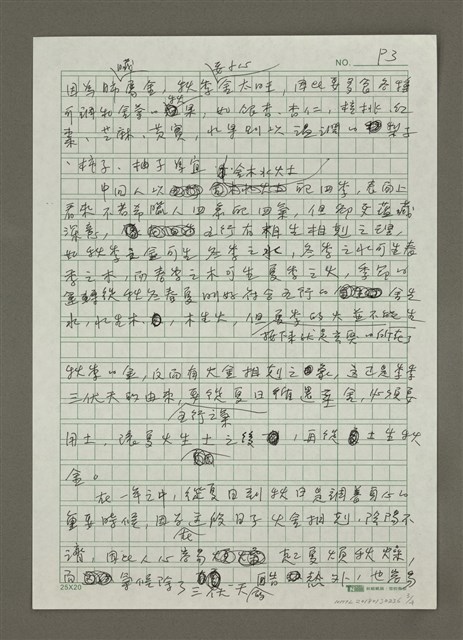 P3
NO.
因為肺屬金，秋季金太旺，因此要多食各種
可調和金氣的果，如銀杏、杏仁、核桃、紅
棗、芝麻、黃實，水果則以溫潤的梨子
、柿子、柚子皆宜
金木水火土
中國人以配四季，表面上
看來不若希臘人四季配四氣，但卻更蘊
深意，五行有相生相剋之理，
如秋季之金可生冬季之水，冬季之水可生春
季之木，而春季之木可生夏季之火，季節的
從秋冬春夏剛好符合五行的金生
水，水生木，木生火，但夏季的火並不能生
接下來就是主要的所在了
秋季的金，反而有火金相剋之象，這也是
三伏天的由來，要從夏日進金，必須要
五行之氣
用土，讓夏火生土之後，再從土生秋
金。
在一年之中，從夏日到秋日是調養身心的
重要時候，因為這段日子火金相剋，陰陽不
調，因此人心容易起夏煩秋燥，
在
而氣候除了三伏天
酷熱外，也容易
25X20